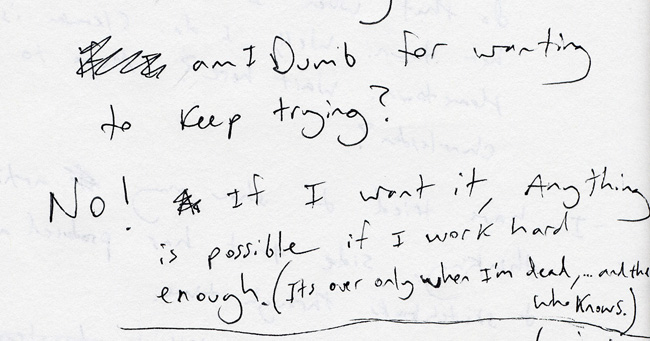 am I Dumb for wanting
to keep trying?
No! If I want it, Anything
is possible if I work hard
enough. (Its over only when I'm dead,... and the
who knows.)